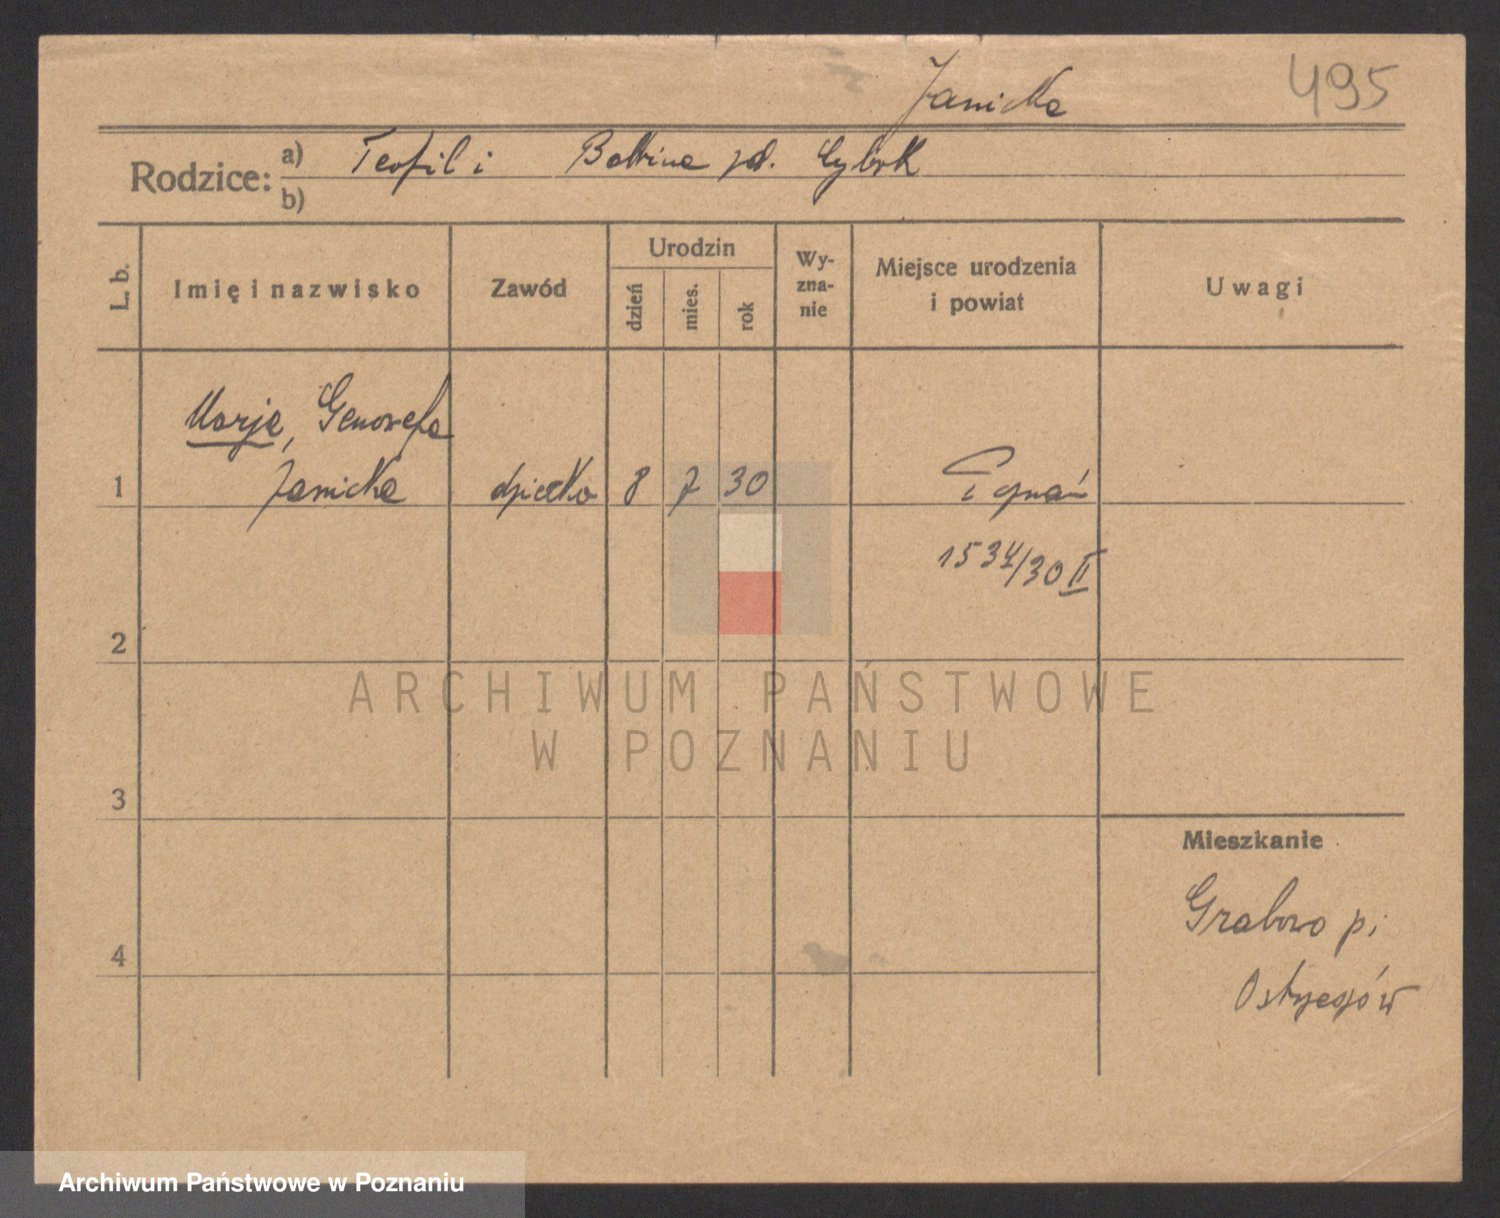 Janicka 495
Rodzice: a) Teofil i Balbina zd. Cybik
b)
L. b. Imię i nazwisko Zawód Urodzin dzień mies. rok Wyzna-nie Miejsce urodzenia i powiat Uwagi
Marja, Genowefa
1 Janicka dziecko 8 7 30 Poznań
1534/30 II
2
ARCHIWUM PAŃSTWOWE
W POZNANIU
3
Mieszkanie
Grabowo p.
4
Ostrzeszów
Archiwum Państwowe w Poznaniu